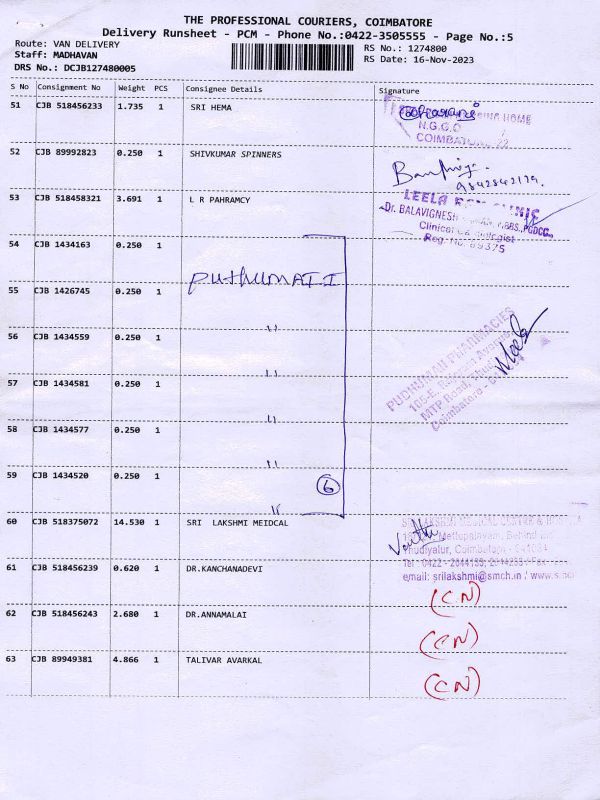 THE PROFESSIONAL COURIERS, COIMBATORE
Delivery Runsheet - PCM - Phone No.:0422-3505555 - Page No.:5
Route: VAN DELIVERY
RS No.: 1274800
Staff: MADHAVAN
RS Date: 16-Nov-2023
DRS No.: DCJB127480005
S No Consignment No Weight PCS Consignee Details Signature
51 CJB 518456233 1.735 1 SRI HEMA
HOME
N.G.G.O
COIMBATORE 22
52 CJB 89992823 0.250 1 SHIVKUMAR SPINNERS
9842842179.
53 CJB 518458321 3.691 1 L R PAHRAMCY
LEELA CLINIC
Dr. BALAVIGNESH
Reg. No. 89375
54 CJB 1434163 0.250 1
puthumAI I
55 CJB 1426745 0.250 1
"
56 CJB 1434559 0.250 1
"
PUDHUMAI PHARMACIES
MTP Road,
Coimbatore -
57 CJB 1434581 0.250 1
"
58 CJB 1434577 0.250 1
"
59 CJB 1434520 0.250 1
6
"
60 CJB 518375072 14.530 1 SRI LAKSHMI MEIDCAL
SRI LAKSHMI MEDICAL CENTRE &
Mettupalayam, Behind
Thudiyalur, Coimbatore - 641034
Tel : 0422 - 2644155,
email: srilakshmi@smch.in / www.
61 CJB 518456239 0.620 1 DR.KANCHANADEVI
(CN)
62 CJB 518456243 2.680 1 DR.ANNAMALAI
(CN)
63 CJB 89949381 4.866 1 TALIVAR AVARKAL
(CN)